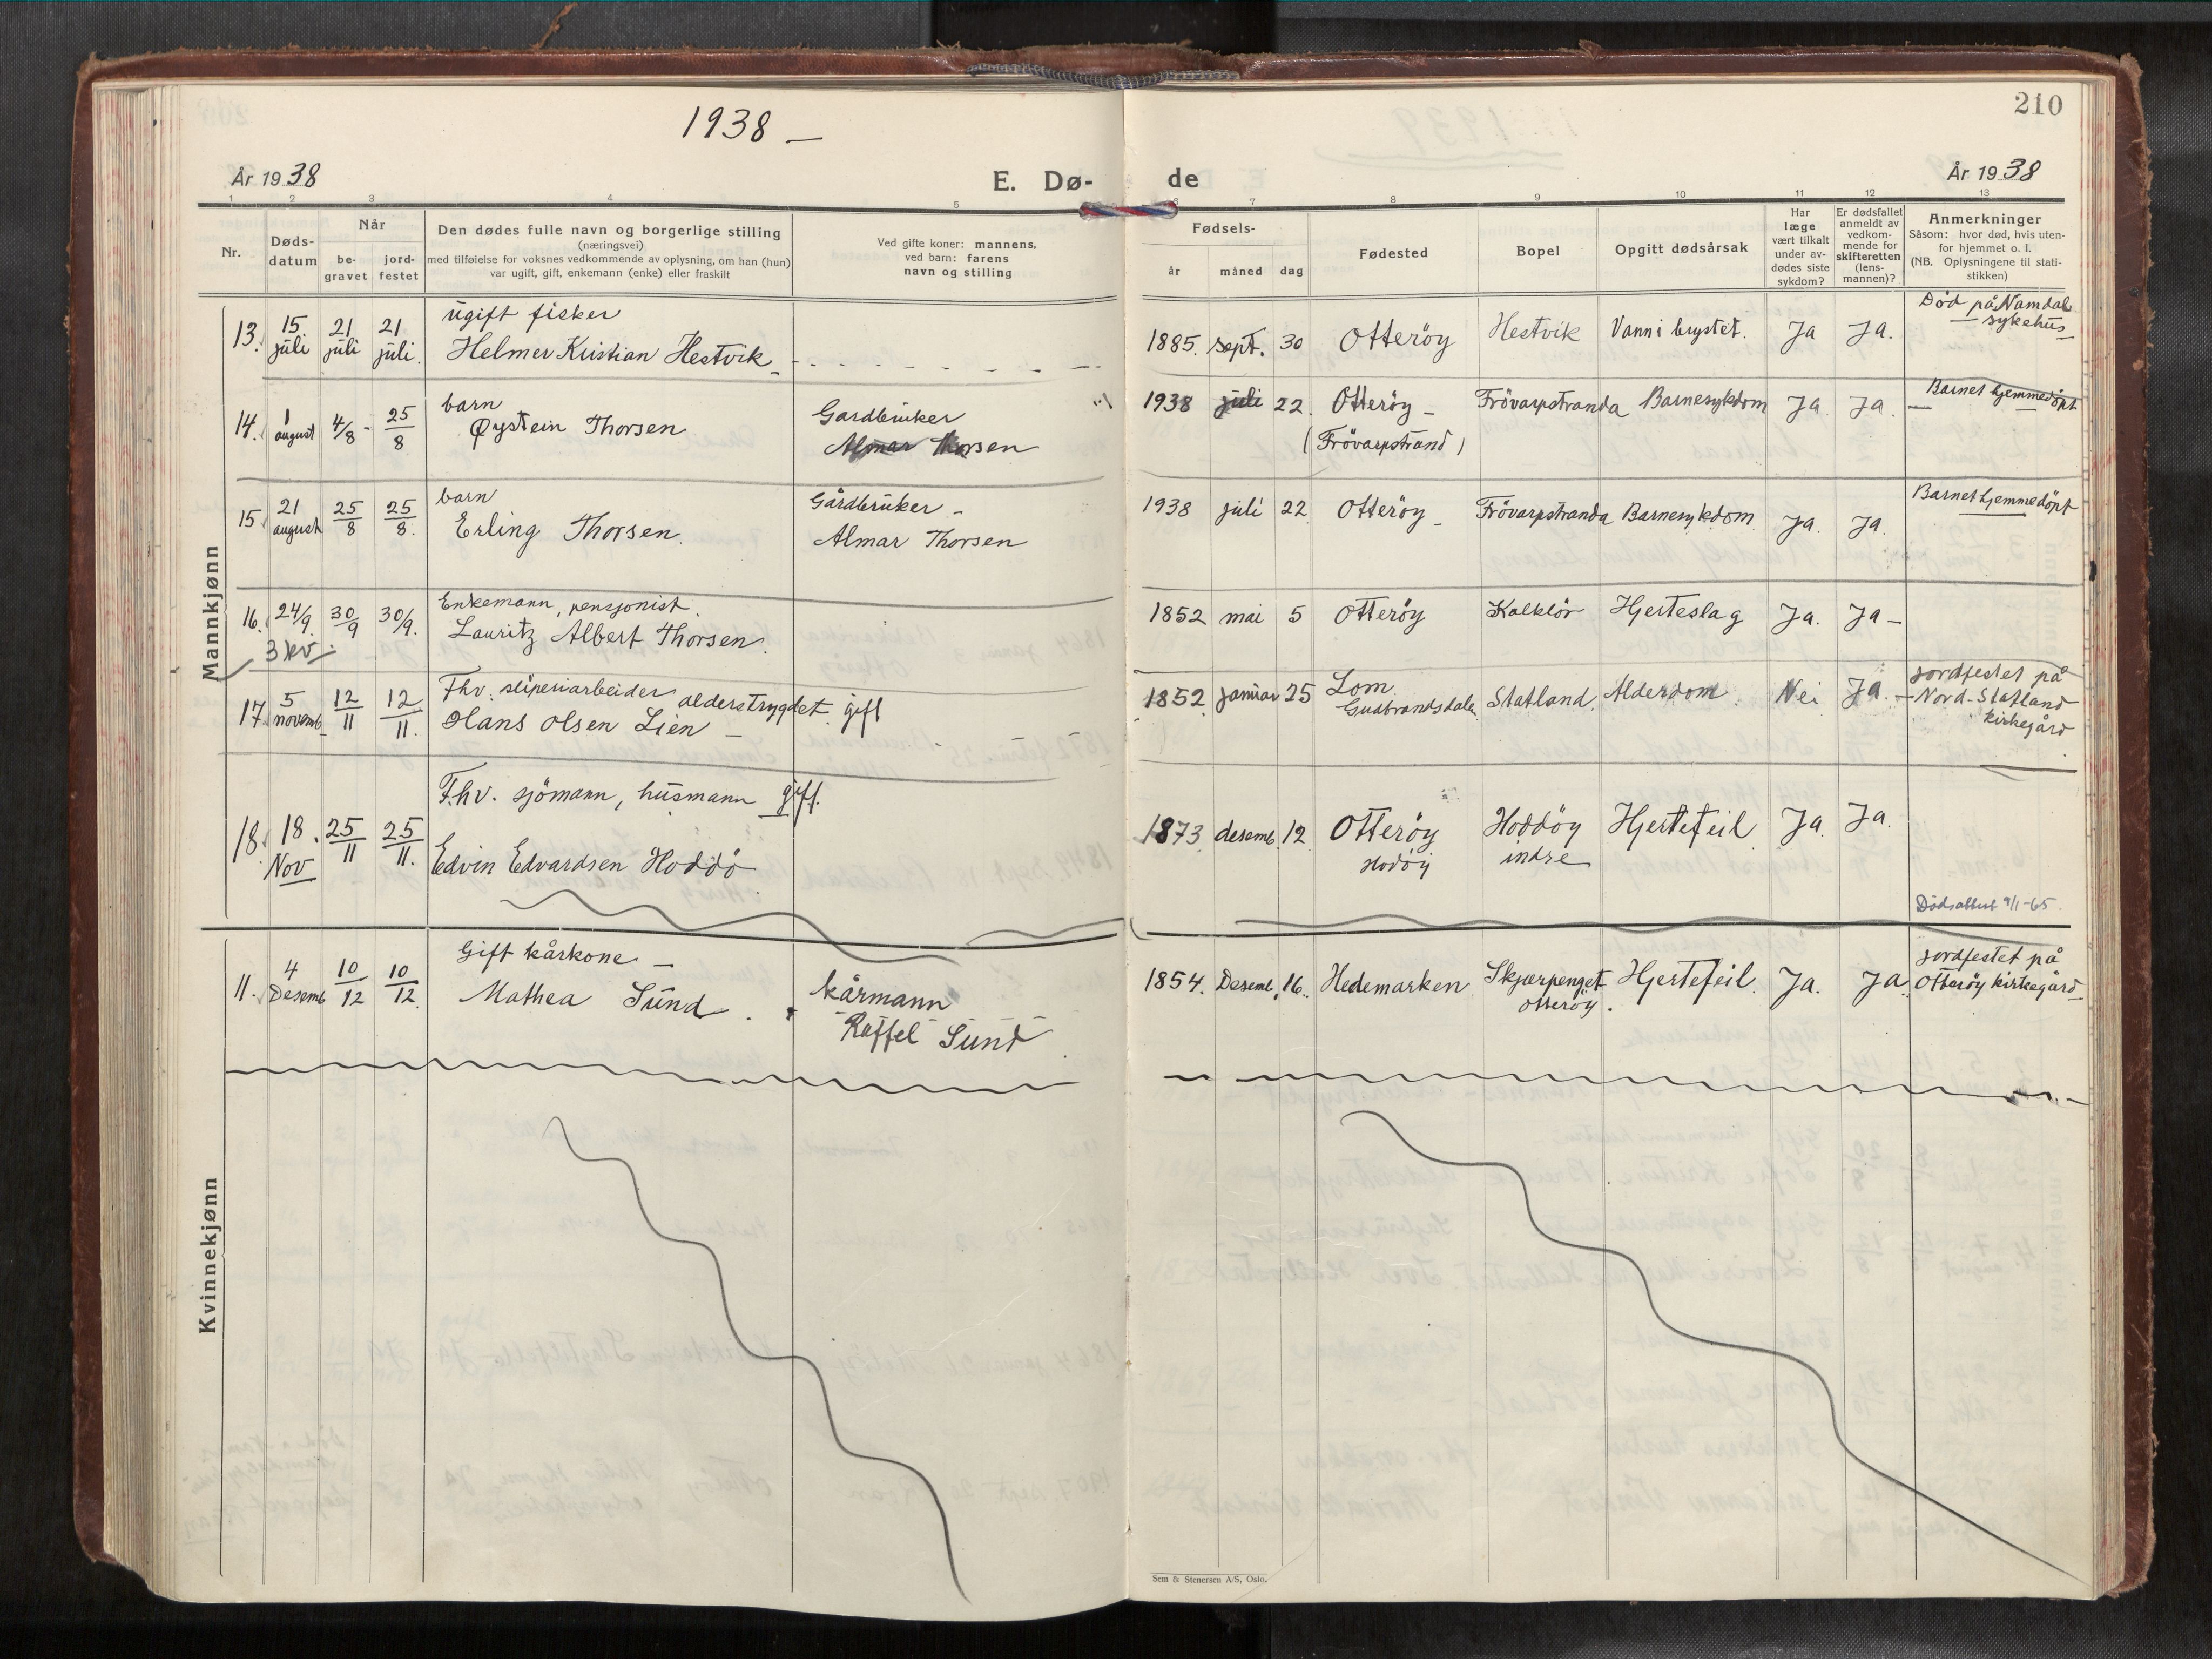 210
1938 –
År 1938
E. Dø-
de
År 1938
1 2 3 4 5
7 8 9 10 11 12 13
Nr.
Døds-
datum
Når
be-
gravet
jord-
festet
Den dødes fulle navn og borgerlige stilling
(næringsvei)
med tilføielse for voksnes vedkommende av oplysning, om han (hun)
var ugift, gift, enkemann (enke) eller fraskilt
Ved gifte koner: mannens,
ved barn: farens
navn og stilling
Fødsels-
år
måned
dag
Fødested
Bopel
Opgitt dødsårsak
Har
læge
vært tilkalt
under av-
dødes siste
sykdom?
Er dødsfallet
anmeldt av
vedkom-
mende for
skifteretten
(lens-
mannen)?
Anmerkninger
Såsom: hvor død, hvis uten-
for hjemmet o. l.
(NB. Oplysningene til stati-
stikken)
Mannkjønn
13. 15 juli 21 juli 21 juli.
ugift fisker
Helmer Kristian Hestvik
1885. sept. 30 Otteröy Hestvik Vann i brystet. Ja Ja.
Död på Namdal
sykehus
14. 1 august 4/8 - 25/8
barn
Øystein Thorsen
Gardbruker
Almar Thorsen
1938 juli 22 Otterøy –
(Frövarpstrand)
Frövarpstranda Barnesykdom Ja Ja.
Barnet hjemmedöpt
15 21 august 25/8 25/8.
barn
Erling Thorsen.
Gårdbruker –
Almar Thorsen
1938 juli 22 Otteröy – Frövarpstranda Barnesykdom Ja. Ja.
Barnet hjemmedöpt
16. 24/9. 30/9 30/9.
3 kv.
Enkemann, pensjonist.
Lauritz Albert Thorsen.
1852 mai 5 Otteröy Kalklör Hjerteslag Ja. Ja –
17. 5 novemb 12/11 12/11.
Fhv. sliperiarbeider alderstrygdet. gift
Hans Olsen Lien –
1852 januar 25 Lom
Gudbrandsdalen
Statland. Alderdom. Nei Ja. –
jordfestet på
Nord-Statland
kirkegård
18. 18. Nov 25/11 25/11.
Fhv. sjömann, husmann gift.
Edvin Edvardsen Hoddö
1873 desemb. 12 Otteröy
Hodöy
Hoddöy
indre
Hjertefeil Ja. Ja.
Dödsattest 9/1-65.
Kvinnekjønn
11. 4 Desemb 10/12 10/12.
Gift kårkone –
Mathea Sund.
kårmann
Raffel Sund
1854. Desemb. 16. Hedemarken Skjærpenget
Otteröy.
Hjertefeil. Ja. Ja.
jordfestet på
Otteröy kirkegård
Sem & Stenersen A/S, Oslo.